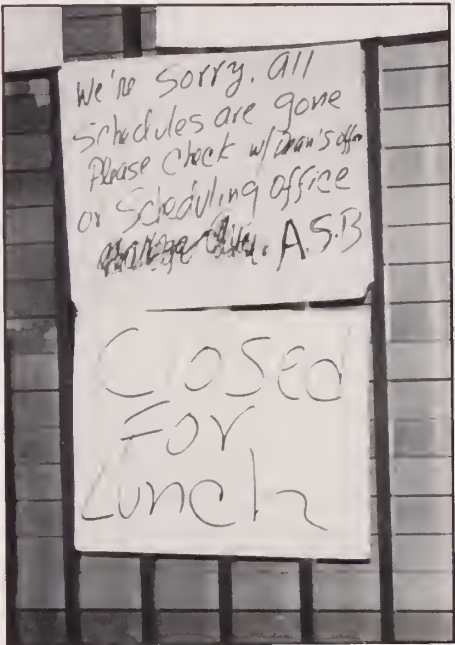 We're Sorry, all
Schedules are gone
Please Check w/ Dean's offic
or Scheduling office
A.S.B
Closed
For
Lunch